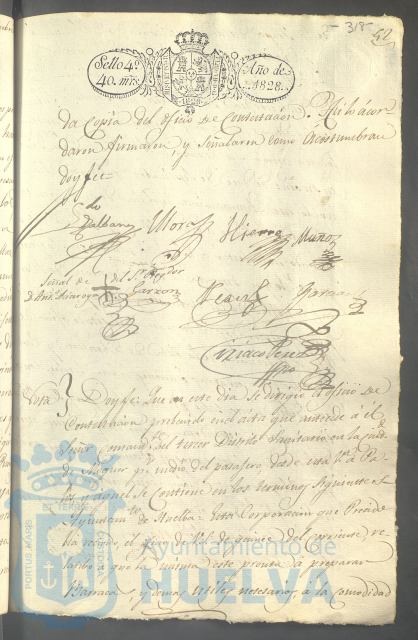 318
Sello 4º
40. mrs.
Año de
1828.
da Copia del Oficio de Contestacion. Asi lo acor-
daron firmaron, y Señalaron como Acostumbran
doy fee-
Mora Hierro Muñoz
Señal de del Sr. Regidor
Garzon
Garcia
Nota Doy fe: Que en este dia se dirigio el oficio de
Contestacion prebenido en el acta que antecede á el
Señor Comand.te del tercer Distrito Sanitario en la ciudad
de Moguer por medio del pasagero, dado esta Vª. de Pa-
y aquel se Contiene en los terminos Siguientes el
Ayuntam.to de Huelba = Esta Corporacion que Preside
ha recibido el oficio de V.S. de quince del corriente re-
lativo á que la misma este pronta á preparar
Barracas, y demas utiles necesarios á la comodidad
PORTUS MARIS ET TERRAE CUSTODIA
Ayuntamiento de
HUELVA